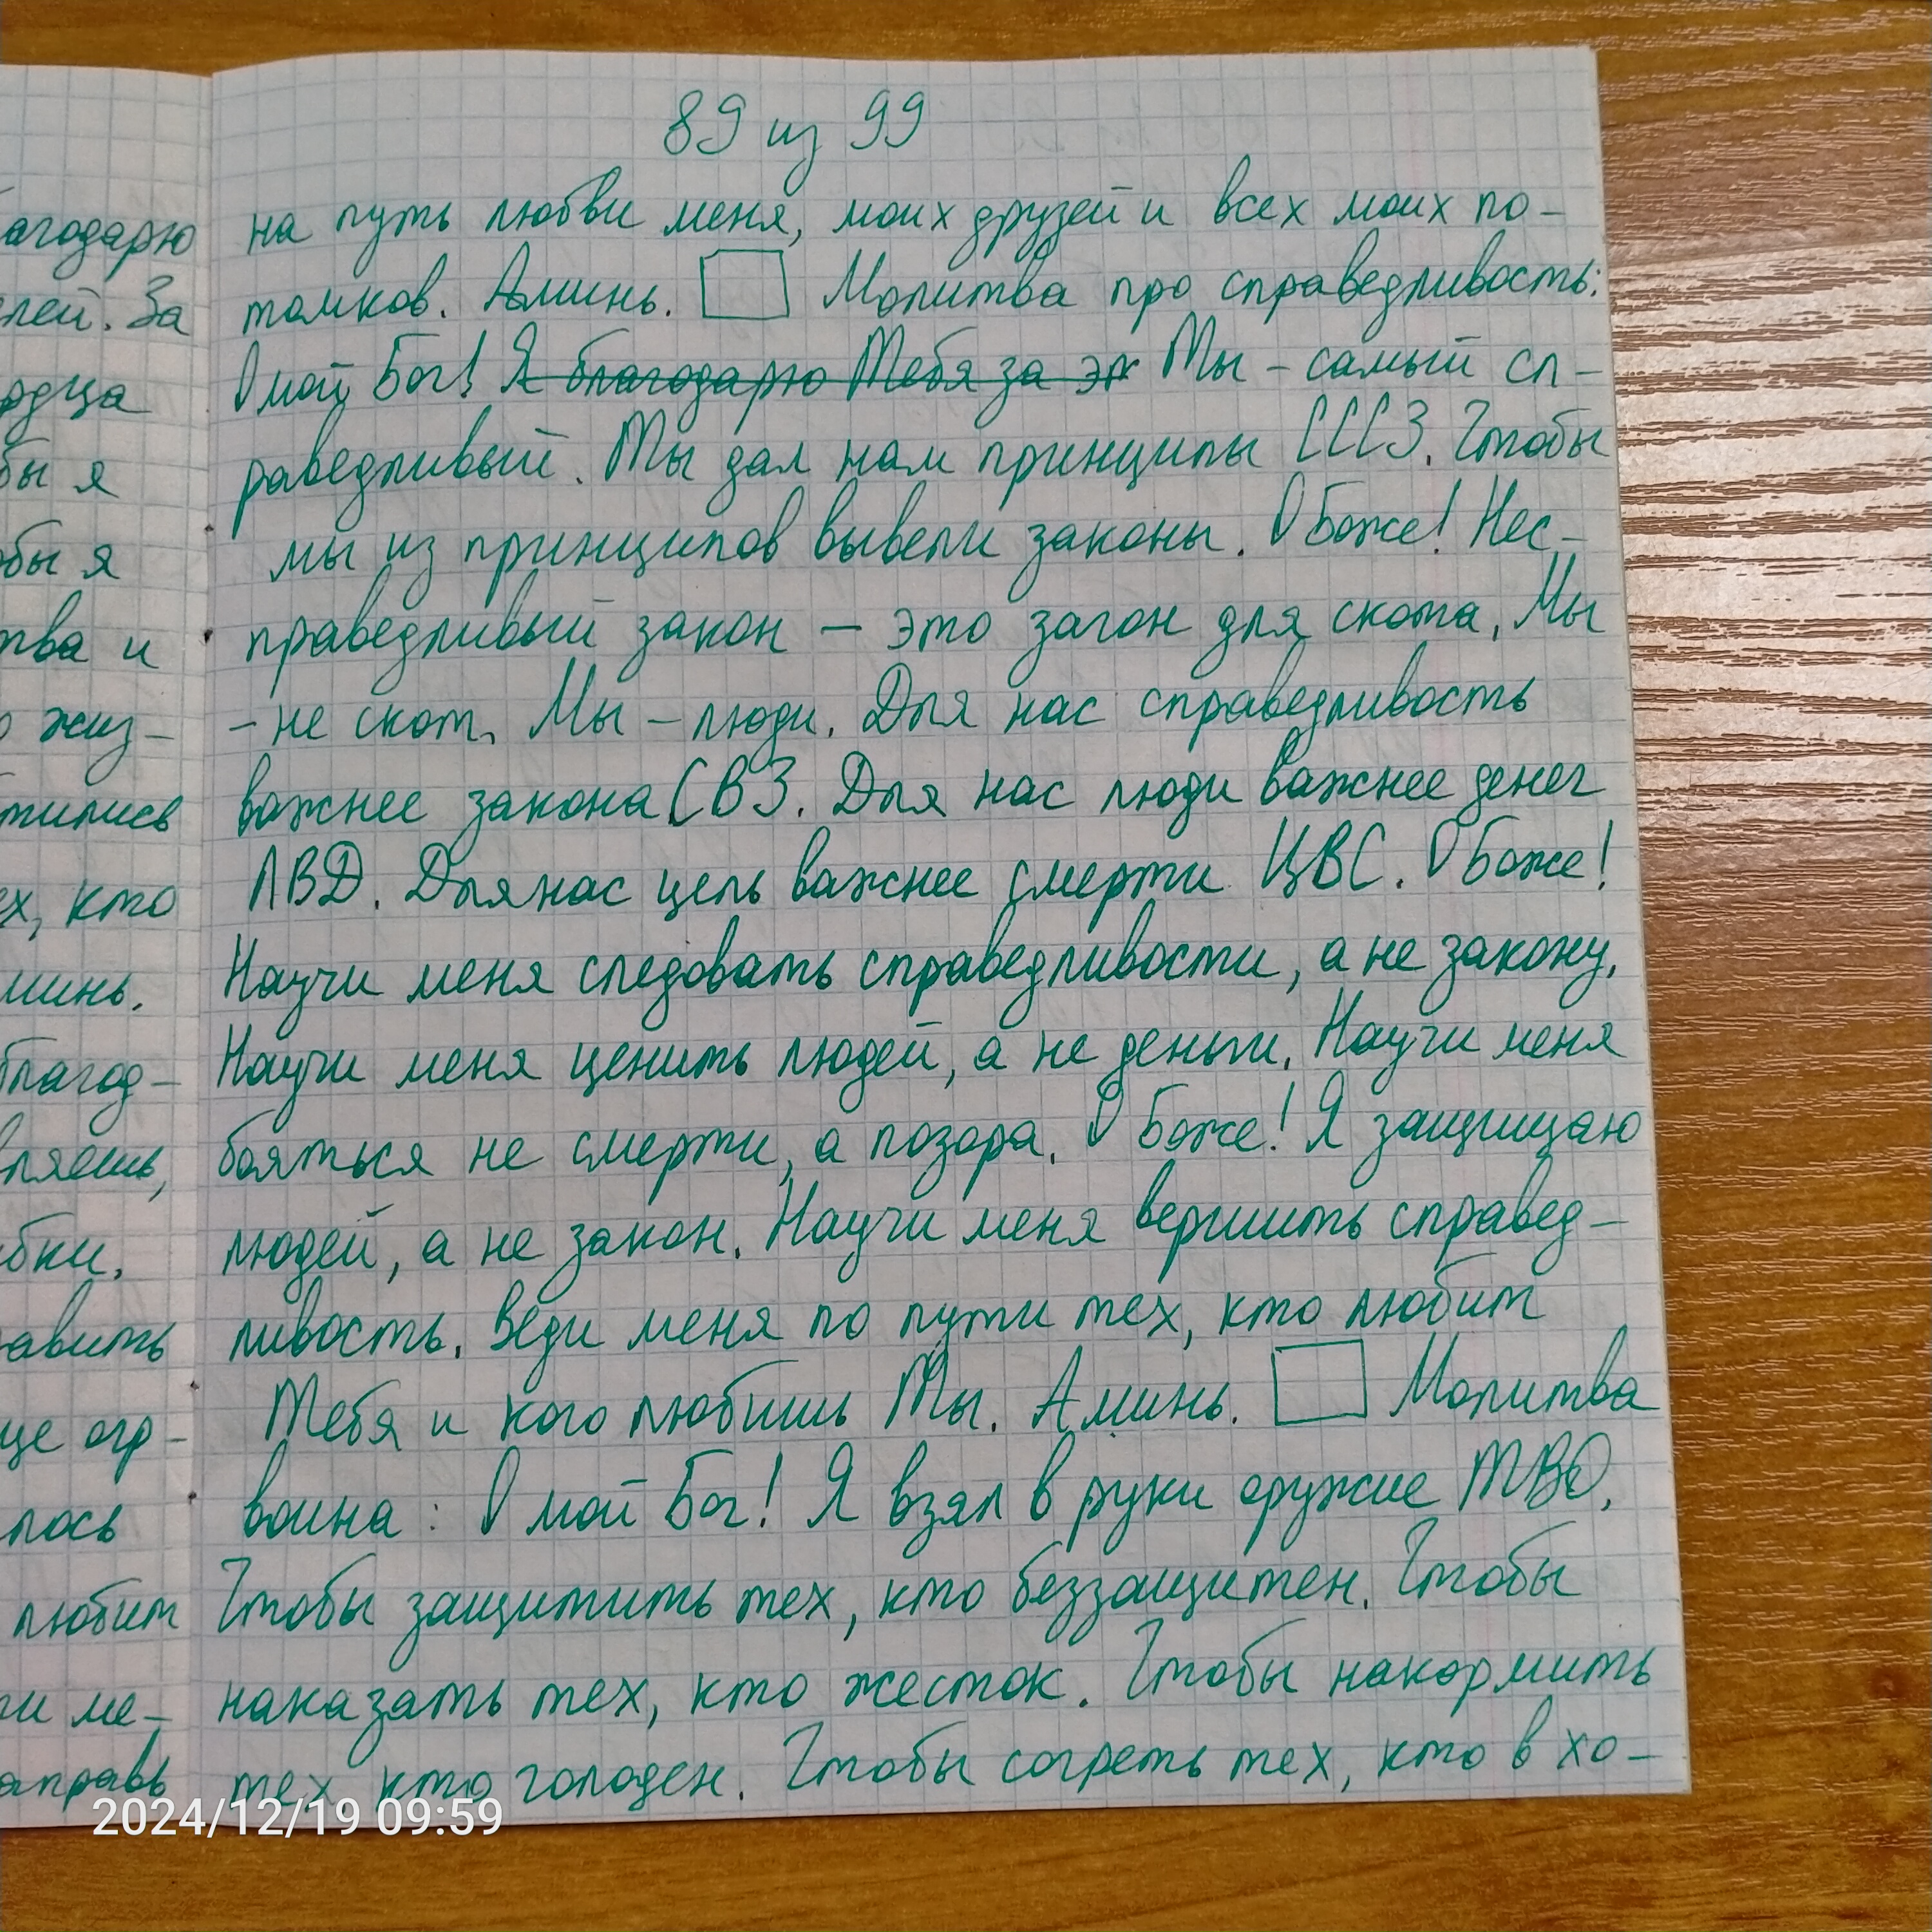 89 из 99
на путь любви меня, моих друзей и всех моих по-
томков. Аминь. Молитва про справедливость:
О мой Бог! Я благодарю Тебя за эт Ты - самый сп-
раведливый. Ты дал нам принципы СССЗ. Чтобы
мы из принципов вывели законы. О Боже! Нес-
праведливый закон - это загон для скота. Мы
- не скот. Мы - люди. Для нас справедливость
важнее закона СВЗ. Для нас люди важнее денег
ЛВД. Для нас цель важнее смерти ЦВС. О Боже!
Научи меня следовать справедливости, а не закону.
Научи меня ценить людей, а не деньги. Научи меня
бояться не смерти, а позора. О Боже! Я защищаю
людей, а не закон. Научи меня вершить справед-
ливость. Веди меня по пути тех, кто любит
Тебя и кого любишь Ты. Аминь. Молитва
воина: О мой Бог! Я взял в руки оружие ТВО.
Чтобы защитить тех, кто беззащитен. Чтобы
наказать тех, кто жесток. Чтобы накормить
тех, кто голоден. Чтобы согреть тех, кто в хо-
агодарю
лей. За
рдца
бы я
обы я
тва и
о жиз-
тились
ех, кто
минь.
благод-
вляешь,
бки.
авить
ще огр-
лось
любит
ти ме-
аправь
2024/12/19 09:59